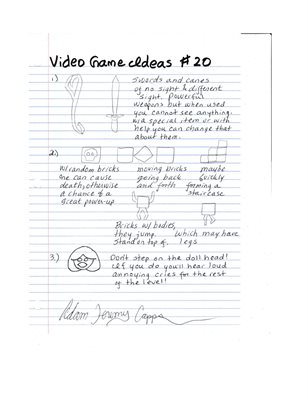 Video Game Ideas #20
1.) Swords and canes
of no sight & different
sight. Powerful
weapons but when used
you cannot see anything.
W/a special item or with
help you can change that
about them.
2.)
W/random bricks moving bricks maybe
one can cause going back quickly
death, otherwise and forth forming a
a chance of a staircase
great power-up.
Bricks w/bodies,
they jump. Which may have
Stand on top of. legs
3.) Don't step on the doll head!
If you do you'll hear loud
annoying cries for the rest
of the level!
Adam Jeremy Capps